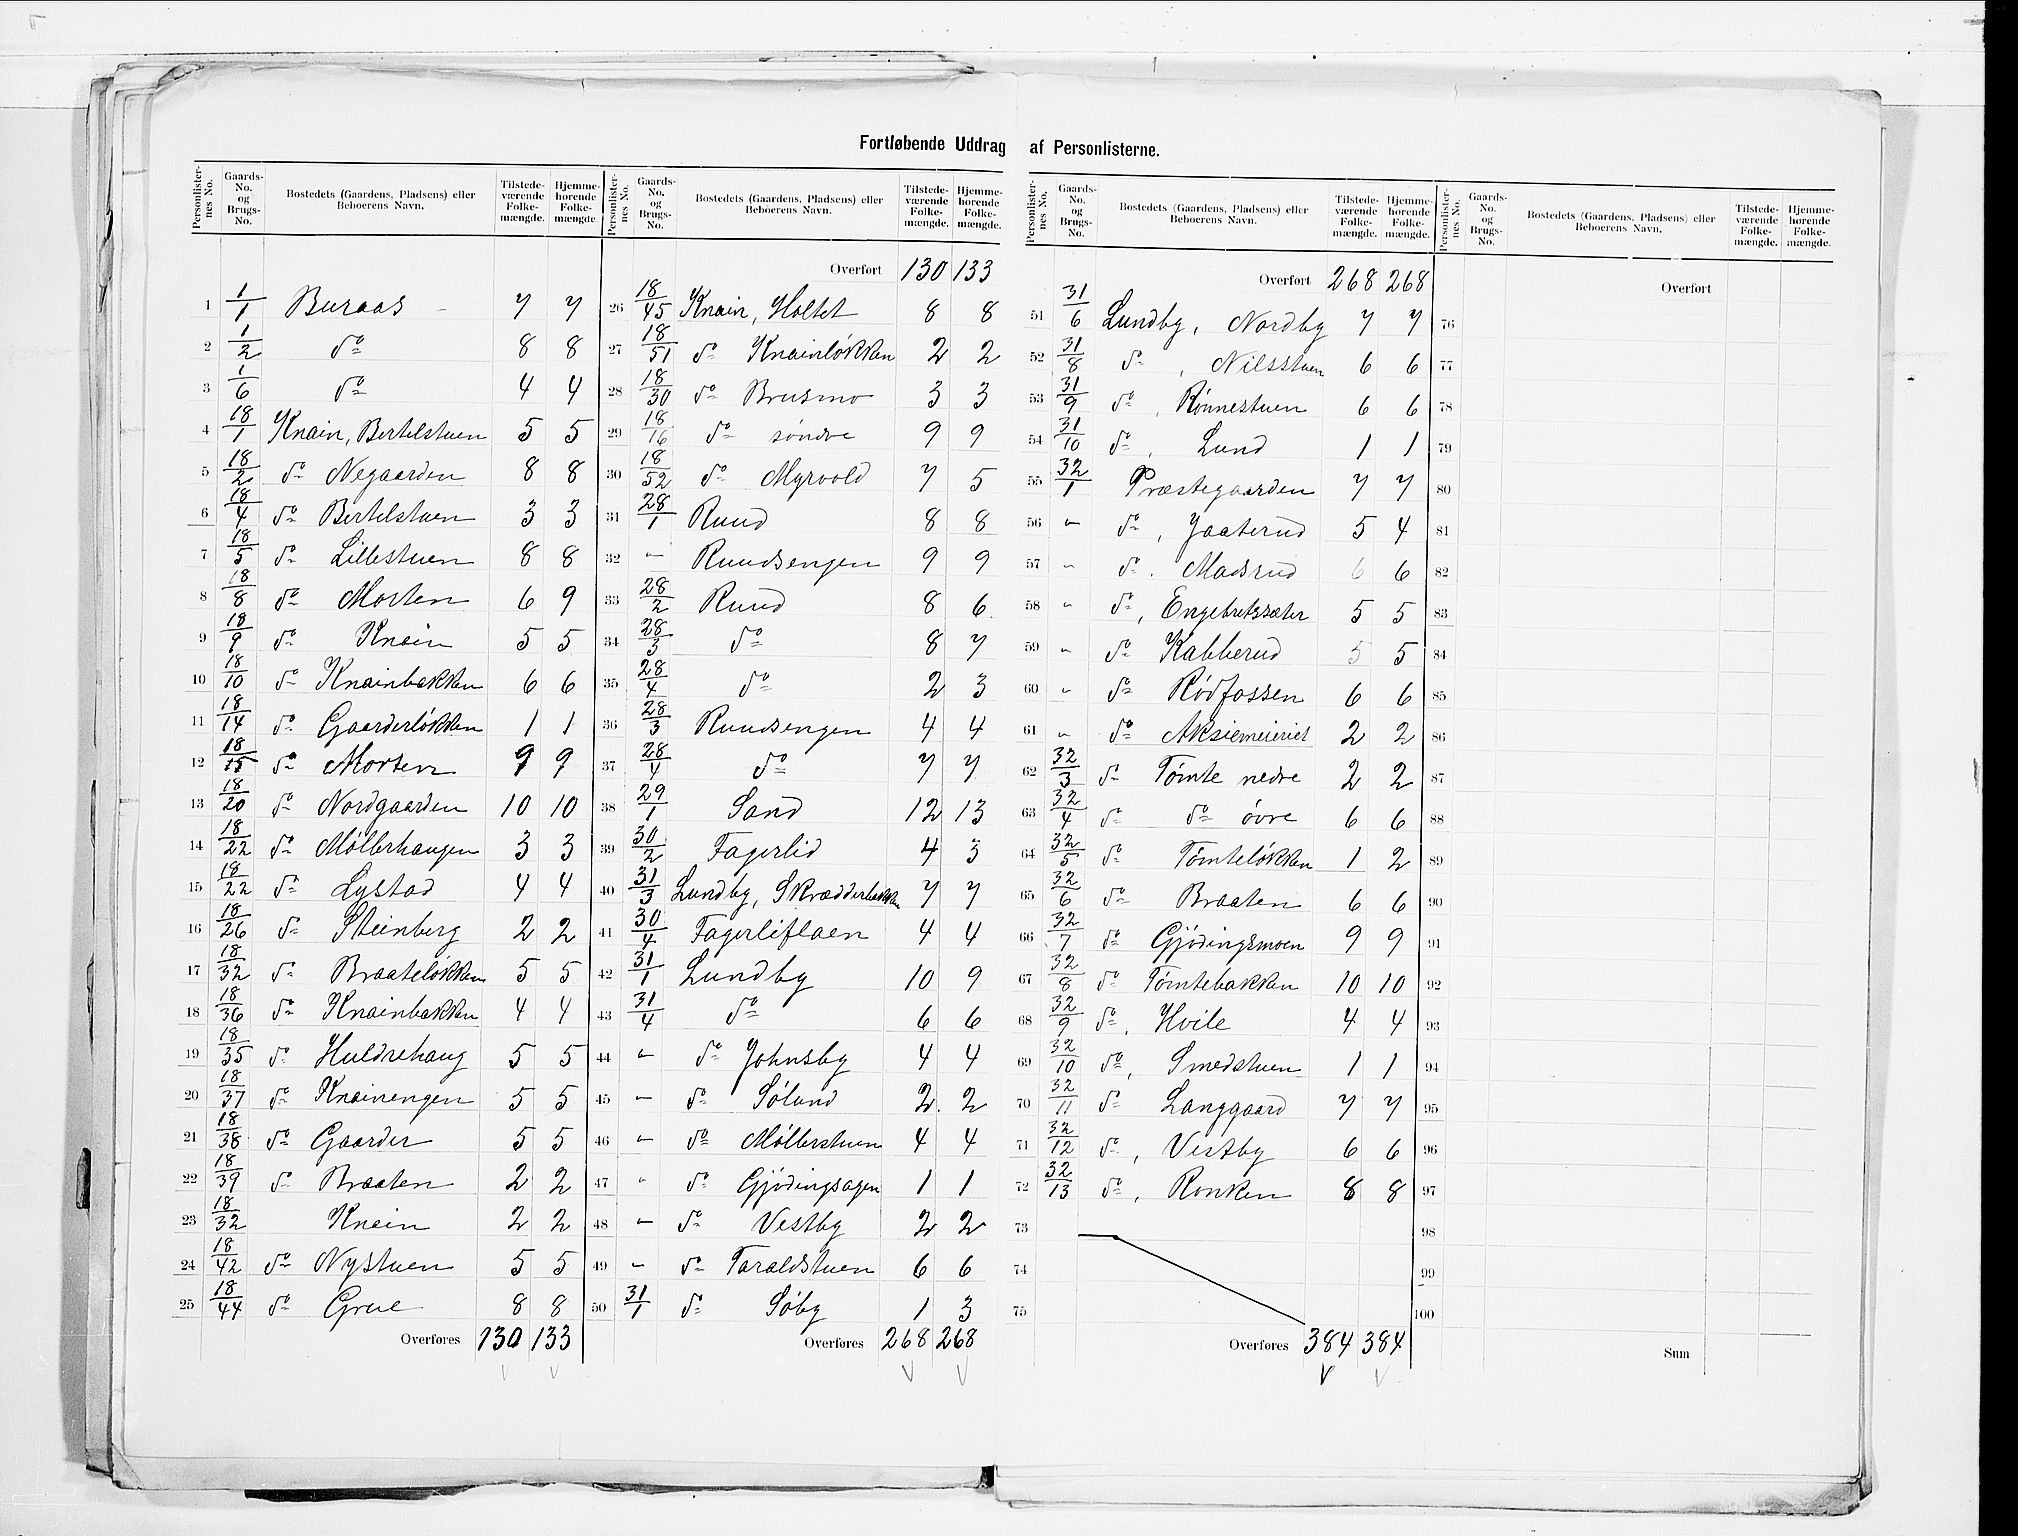 Fortløbende Uddrag af Personlisterne.
Personlister-nes No. | Gaards-No. og Brugs-No. | Bostedets (Gaardens, Pladsens) eller Beboerens Navn. | Tilstede-værende Folke-mængde. | Hjemme-horende Folke-mængde.
1 | 1/1 | Buraas | 7 | 7
2 | 1/2 | do | 8 | 8
3 | 1/6 | do | 4 | 4
4 | 18/1 | Knain, Bertelstuen | 5 | 5
5 | 18/2 | do Negaarden | 8 | 8
6 | 18/4 | do Bertelstuen | 3 | 3
7 | 18/5 | do Lillestuen | 8 | 8
8 | 18/8 | do Morten | 6 | 9
9 | 18/9 | do Knain | 5 | 5
10 | 18/10 | do Knainbakken | 6 | 6
11 | 18/14 | do Gaarderløkken | 1 | 1
12 | 18/15 | do Morten | 9 | 9
13 | 18/20 | do Nordgaarden | 10 | 10
14 | 18/22 | do Møllerhaugen | 3 | 3
15 | 18/22 | do Lystad | 4 | 4
16 | 18/26 | do Steinberg | 2 | 2
17 | 18/32 | do Braateløkken | 5 | 5
18 | 18/36 | do Knainbakken | 4 | 4
19 | 18/35 | do Huldrehaug | 5 | 5
20 | 18/37 | do Knainengen | 5 | 5
21 | 18/38 | do Gaarder | 5 | 5
22 | 18/39 | do Braaten | 2 | 2
23 | 18/32 | Knain | 2 | 2
24 | 18/42 | do Nystuen | 5 | 5
25 | 18/44 | do Grue | 8 | 8
Overføres 130 133
Personlister-nes No. | Gaards-No. og Brugs-No. | Bostedets (Gaardens, Pladsens) eller Beboerens Navn. | Tilstede-værende Folke-mængde. | Hjemme-horende Folke-mængde.
Overført 130 133
26 | 18/45 | Knain, Holtet | 8 | 8
27 | 18/51 | do Knainløkken | 2 | 2
28 | 18/30 | do Brusmo | 3 | 3
29 | 18/16 | do søndre | 9 | 9
30 | 18/52 | do Myrvold | 7 | 5
31 | 28/1 | Ruud | 8 | 8
32 | " | Ruudsengen | 9 | 9
33 | 28/2 | Ruud | 8 | 6
34 | 28/3 | do | 8 | 7
35 | 28/4 | do | 2 | 3
36 | 28/3 | Ruudsengen | 4 | 4
37 | 28/4 | do | 7 | 7
38 | 29/1 | Sand | 12 | 13
39 | 30/2 | Fagerlid | 4 | 3
40 | 31/3 | Lundby, Skrædderbakken | 7 | 7
41 | 30/4 | Fagerliflaen | 4 | 4
42 | 31/1 | Lundby | 10 | 9
43 | 31/4 | do | 6 | 6
44 | " | do Johnsby | 4 | 4
45 | " | do Sølund | 2 | 2
46 | " | do Møllerstuen | 4 | 4
47 | " | do Gjødingsagen | 1 | 1
48 | " | do Vestby | 2 | 2
49 | " | do Taraldstuen | 6 | 6
50 | 31/1 | do Søby | 1 | 3
Overføres 268 268
Personlister-nes No. | Gaards-No. og Brugs-No. | Bostedets (Gaardens, Pladsens) eller Beboerens Navn. | Tilstede-værende Folke-mængde. | Hjemme-horende Folke-mængde.
Overført 268 268
51 | 31/6 | Lundby, Nordby | 7 | 7
52 | 31/8 | do, Nilsstuen | 6 | 6
53 | 31/9 | do, Rønnestuen | 6 | 6
54 | 31/10 | do, Lund | 1 | 1
55 | 32/1 | Præstegaarden | 7 | 7
56 | " | do, Jaaterud | 5 | 4
57 | " | do. Madsrud | 6 | 6
58 | " | do, Engebretssæter | 5 | 5
59 | " | do Kabberud | 5 | 5
60 | " | do Rødfossen | 6 | 6
61 | " | do Aksiemeieriet | 2 | 2
62 | 32/3 | do Tømte nedre | 2 | 2
63 | 32/4 | do do øvre | 6 | 6
64 | 32/5 | do Tømteløkken | 1 | 2
65 | 32/6 | do Braaten | 6 | 6
66 | 32/7 | do Gjødingsmoen | 9 | 9
67 | 32/8 | do Tømtebakken | 10 | 10
68 | 32/9 | do, Hvile | 4 | 4
69 | 32/10 | do, Smedstuen | 1 | 1
70 | 32/11 | do Langgaard | 7 | 7
71 | 32/12 | do, Vestby | 6 | 6
72 | 32/13 | do, Ronken | 8 | 8
73
74
75
Overføres 384 384
Personlister-nes No. | Gaards-No. og Brugs-No. | Bostedets (Gaardens, Pladsens) eller Beboerens Navn. | Tilstede-værende Folke-mængde. | Hjemme-horende Folke-mængde.
Overført
76
77
78
79
80
81
82
83
84
85
86
87
88
89
90
91
92
93
94
95
96
97
98
99
100
Sum